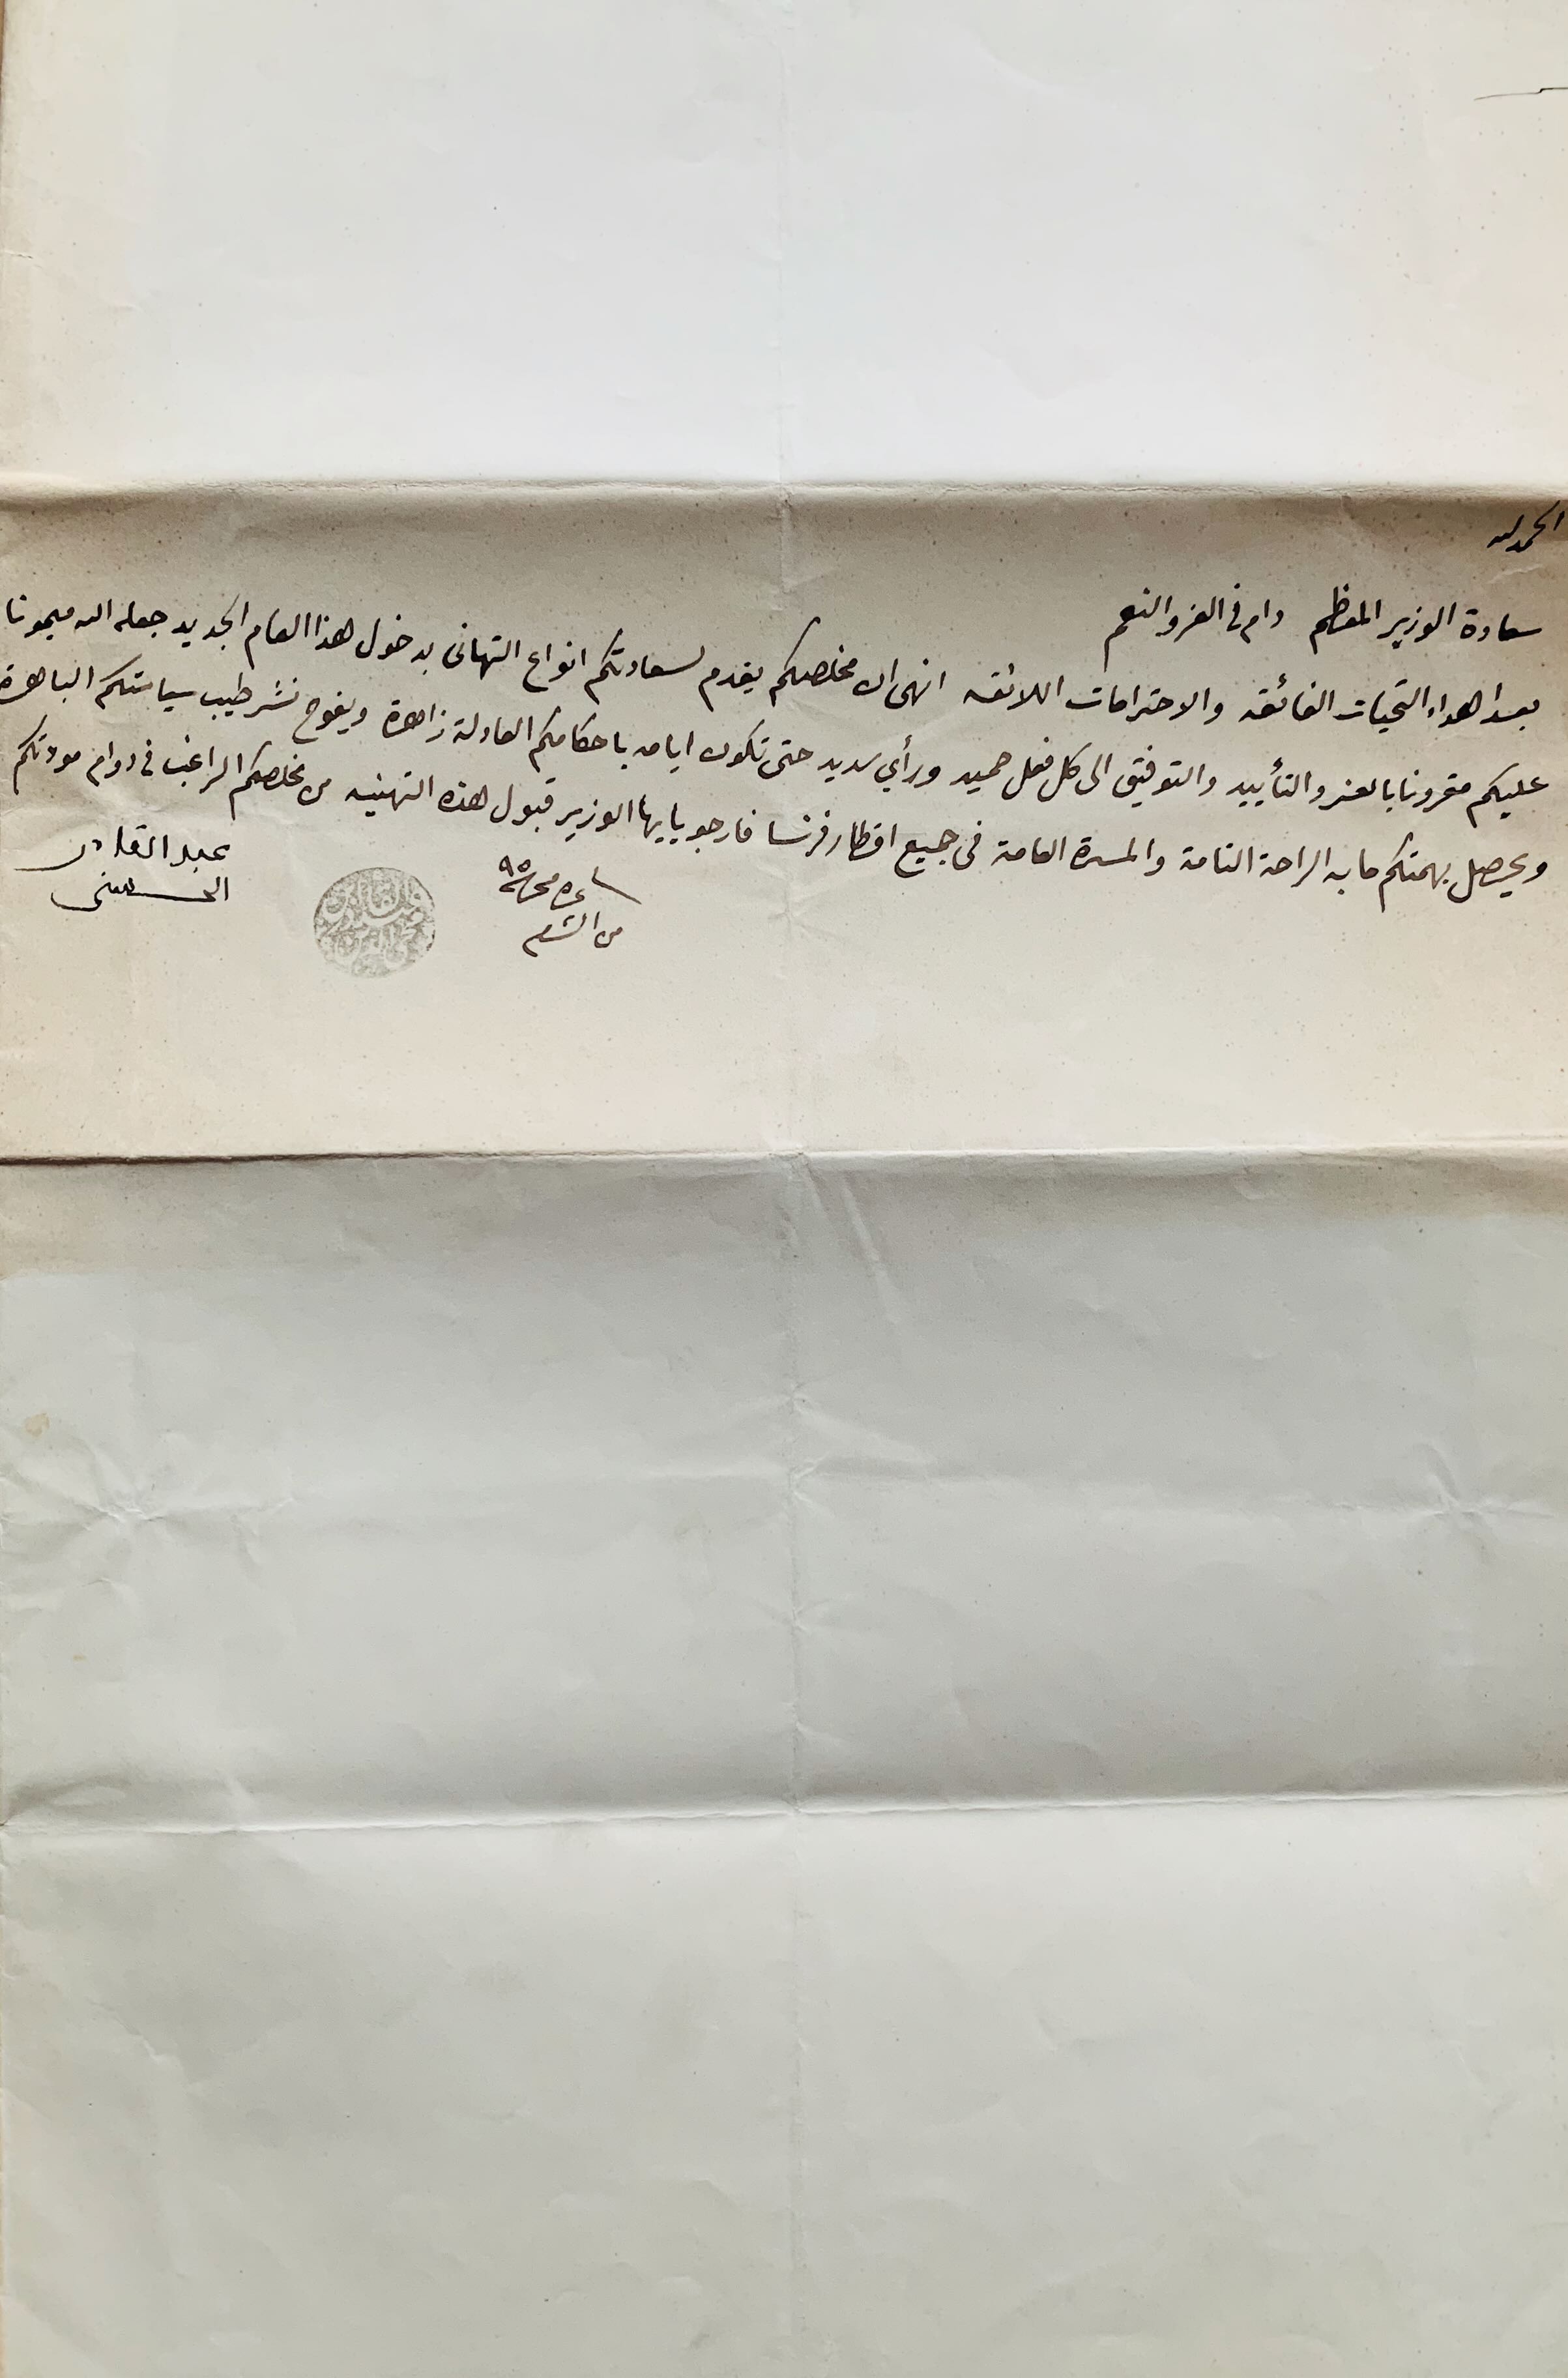 الحمد لله
سعادة الوزير المعظم دام فى العز والنعم
بعد اهداء التحيات الفائقه والاحترامات اللائقه انهى ان مخلصكم يقدم لسعادتكم انواع التهانى بدخول هذا العام الجديد جعله الله ميمونا
عليكم مقرونا بالعز والتأييد والتوفيق الى كل فعل حميد ورأي سديد حتى تكون ايامه باحكامكم العادلة زاهرة ويفوح نشر طيب سياستكم الباهرة
ويحصل بهمتكم ما به الراحة التامة والمسرة العامة فى جميع اقطار فرنسا فارجو يايها الوزير قبول هذه التهنيه من مخلصكم الراغب فى دوام مودتكم
عبد القادر
الحسنى
٩٥
من الشام